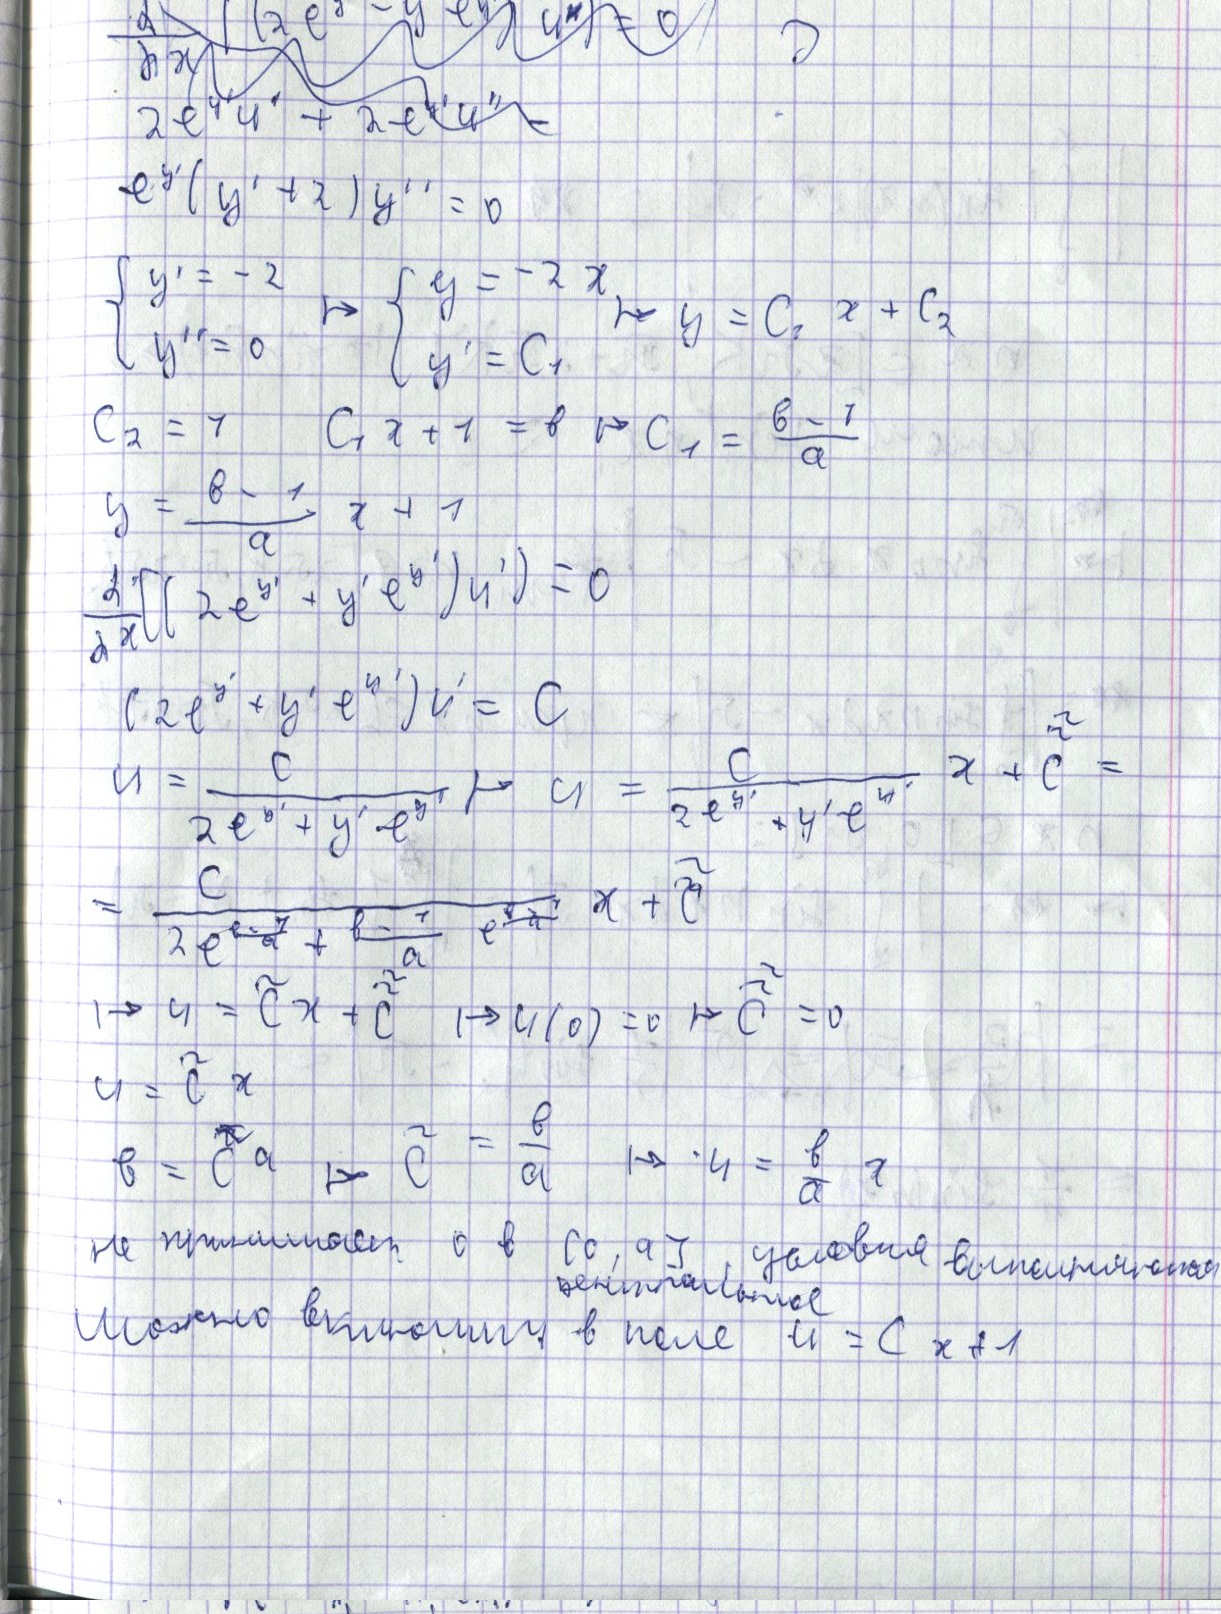 2e^{y'} u' + 2e^{y'} u''
e^{y'}(y' + 2)y'' = 0
{ y' = -2 ↦ { y = -2x ↦ y = C₁ x + C₂
{ y'' = 0 { y' = C₁
C₂ = 1 C₁ x + 1 = в ↦ C₁ = (в - 1)/a
y = (в - 1)/a x + 1
d/dx [(2e^{y'} + y' e^{y'}) u'] = 0
(2e^{y'} + y' e^{y'}) u' = C
u = C/(2e^{y'} + y' e^{y'}) ↦ u = C/(2e^{y'} + y' e^{y'}) x + C̃̃ =
= C/(2e^{(в-1)/a} + (в-1)/a e^{(в-1)/a}) x + C̃̃
↦ u = C̃ x + C̃̃ ↦ u(0) = 0 ↦ C̃̃ = 0
u = C̃ x
в = C̃ a ↦ C̃ = в/a ↦ u = в/a x
не принимает 0 в [0, a], условия выполняются
центральное
Можно включить в поле u = C x + 1